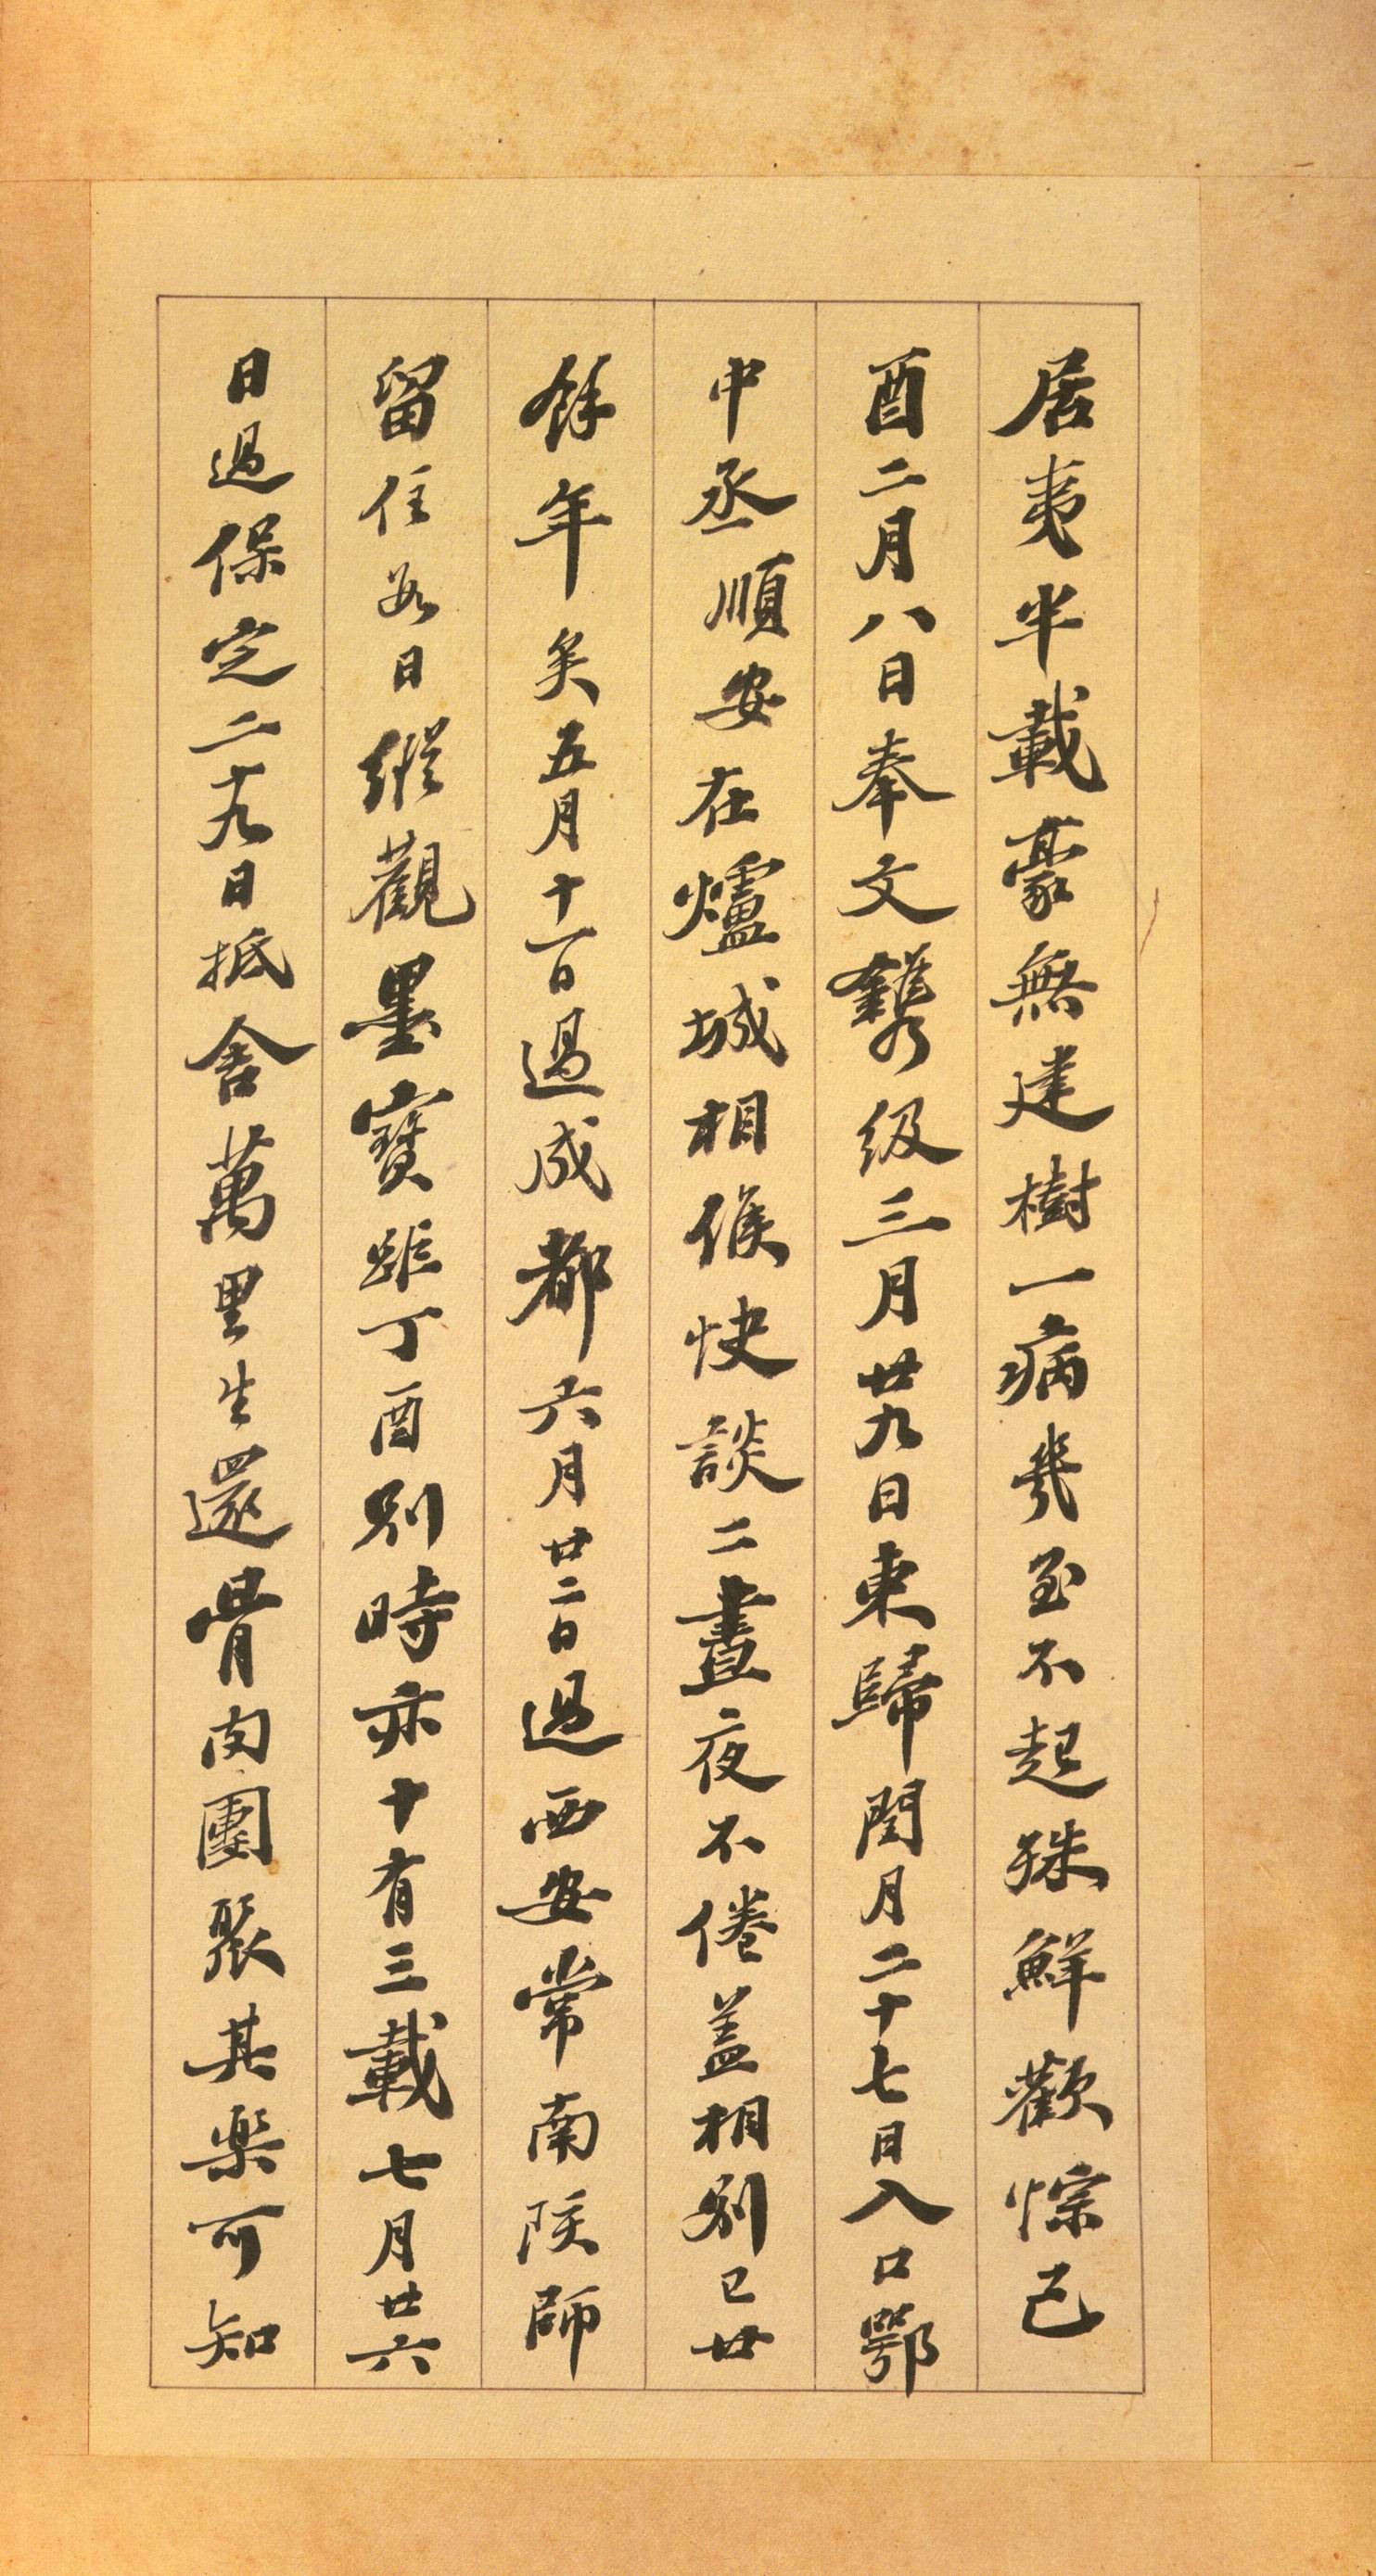 居夷半載毫無建樹一病幾至不起殊鮮歡悰己
酉二月八日奉文鐫級三月廿九日東歸閏月二十七日入口鄂
中丞順安在爐城相候快談二晝夜不倦蓋相別已廿
餘年矣五月十一日過成都六月廿二日過西安常南陔師
留住數日縱觀墨寶距丁酉別時亦十有三載七月廿六
日過保定二十九日抵舍萬里生還骨肉團聚其樂可知